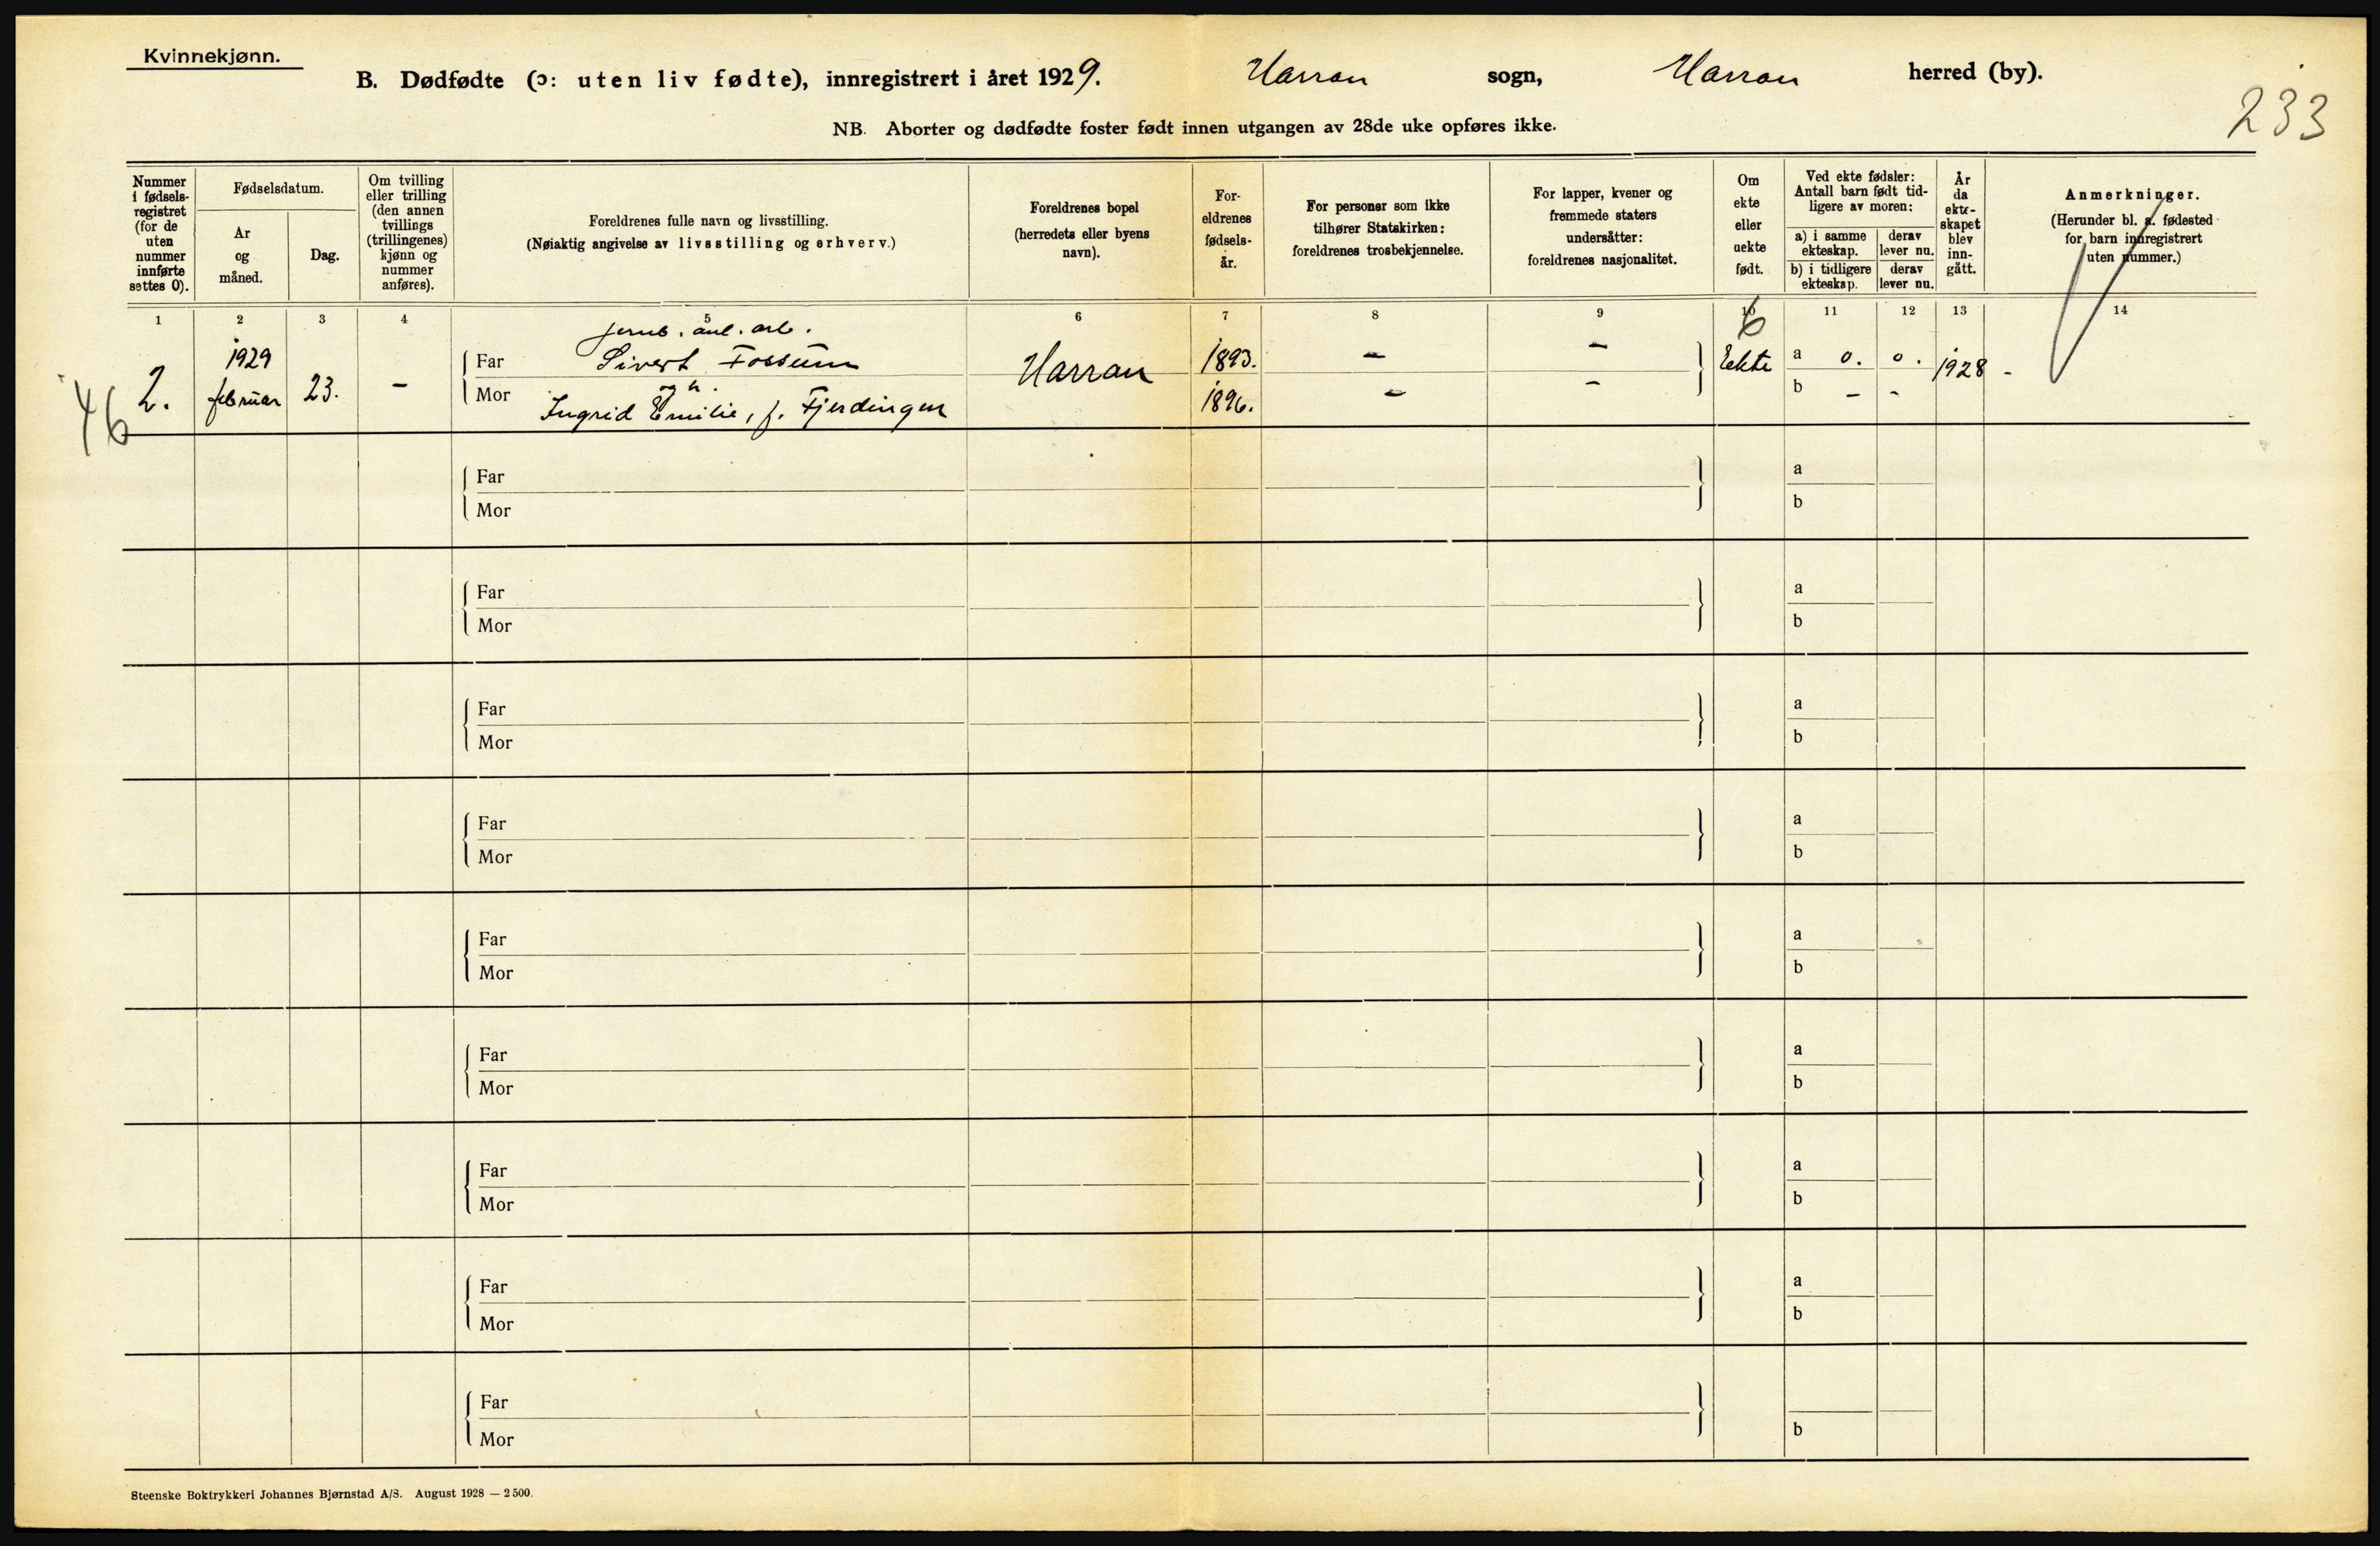 Kvinnekjønn.
B. Dødfødte (ɔ: uten liv fødte), innregistrert i året 1929. Harran sogn, Harran herred (by).
233
NB. Aborter og dødfødte foster født innen utgangen av 28de uke opføres ikke.
Nummer i fødsels-registret (for de uten nummer innførte settes 0).
Fødselsdatum.
År og måned.
Dag.
Om tvilling eller trilling (den annen tvillings (trillingenes) kjønn og nummer anføres).
Foreldrenes fulle navn og livsstilling.
(Nøiaktig angivelse av livsstilling og erhverv.)
Foreldrenes bopel (herredets eller byens navn).
For-eldrenes fødsels-år.
For personer som ikke tilhører Statskirken: foreldrenes trosbekjennelse.
For lapper, kvener og fremmede staters undersåtter: foreldrenes nasjonalitet.
Om ekte eller uekte født.
Ved ekte fødsler: Antall barn født tid-ligere av moren:
a) i samme ekteskap.
derav lever nu.
b) i tidligere ekteskap.
derav lever nu.
År da ekte-skapet blev inn-gått.
Anmerkninger.
(Herunder bl. a. fødested for barn innregistrert uten nummer.)
1 2 3 4 5 6 7 8 9 10 11 12 13 14
6
jernb. anl. arb.
46 2. 1929 februar 23. –
Far Sivert Fossum Harran 1893. – – Ekte a 0. 0. 1928 -
og h.
Mor Ingrid Emilie, f. Fjerdingen 1896. – – b – -
Far a
Mor b
Far a
Mor b
Far a
Mor b
Far a
Mor b
Far a
Mor b
Far a
Mor b
Far a
Mor b
Far a
Mor b
Far
Mor b
Steenske Boktrykkeri Johannes Bjørnstad A/S. August 1928 — 2 500.